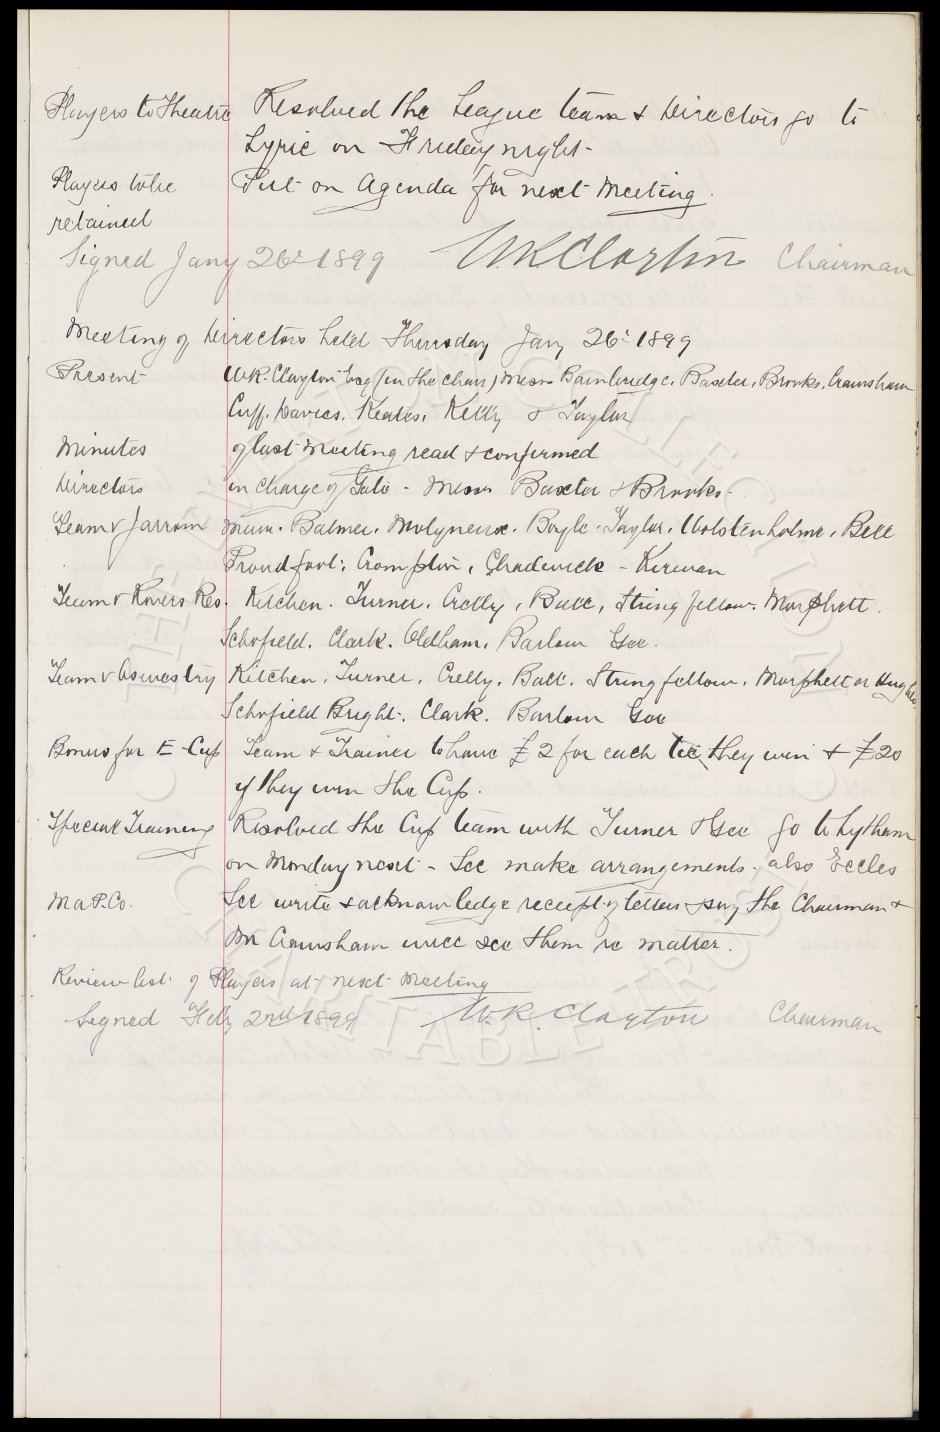 Players to Theatre Resolved the League team & Directors go to
Lyric on Friday night -
Players to be Put on Agenda for next Meeting.
retained
Signed Jany 26th 1899 W.R. Clayton Chairman
Meeting of Directors held Thursday Jany 26th 1899
Present W.R. Clayton Esq (in the chair) Messrs Bainbridge, Baxter, Brooks, Crawshaw
Cuff, Davies, Keates, Kelly & Taylor
Minutes of last Meeting read & confirmed
Directors in charge of Gate - Messrs Baxter & Brooks -
Team v Jarrow Muir. Balmer. Molyneux. Boyle. Taylor. Wolstenholme, Bell
Proudfoot, Crompton, Chadwick - Kirwan
Team v Rovers Res. Kitchen. Turner. Crelly, Ball, Stringfellow. Morphett.
Schofield. Clark. Oldham, Barlow Gee.
Team v Oswestry Kitchen, Turner, Crelly, Ball. Stringfellow. Morphett or Hughes
Schofield Bright. Clark. Barlow Gee
Bonus for E-Cup Team & Trainer to have £2 for each tie they win & £20
if they win the Cup.
Special Training Resolved the Cup team with Turner & Gee go to Lytham
on Monday next - Sec make arrangements. also Eccles
Ma P. Co. Sec write & acknowledge receipt of letter & say the Chairman &
Mr Crawshaw will see them re matter.
Review list of Players at next Meeting
Signed Feby 2nd 1899 W.R. Clayton Chairman
THE EVERTON COLLECTION
CHARITABLE TRUST